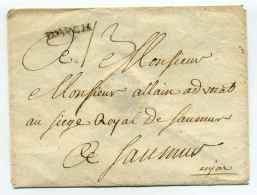 A Monsieur
Monsieur allain advocat
au siege Royal de Saumur
A Saumur